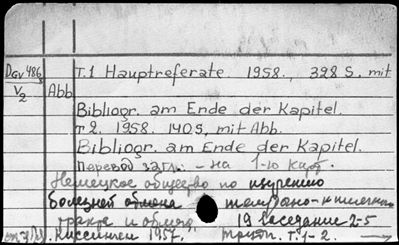 DGv 486 T.1 Hauptreferate. 1958., 328 S. mit
V2 Abb
Bibliogr. am Ende der Kapitel.
т 2. 1958. 140 S, mit Abb.
Bibliogr. am Ende der Kapitel.
Перевод загл: - на 1-ю карт.
Немецкое общество по изучению
болезней обмена
тракта и обмена, 19 Заседание 2-5
Киссинген 1957. Т. 1-2.